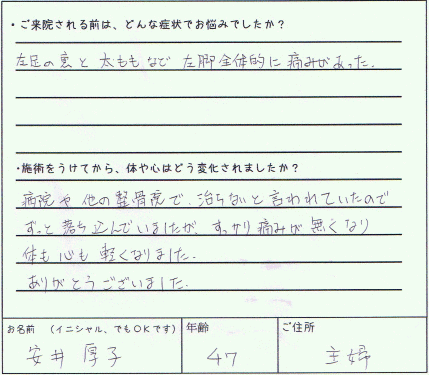 ・ご来院される前は、どんな症状でお悩みでしたか？
左足の裏と 太ももなど 左脚全体的に痛みがあった.
・施術をうけてから、体や心はどう変化されましたか？
病院や他の整骨院で、治らないと言われていたので
ずっと落ち込んでいましたが、すっかり痛みが無くなり
体も心も軽くなりました.
ありがとうございました.
お名前 （イニシャル、でもOKです） 年齢 ご住所
安井 厚子 47 主婦